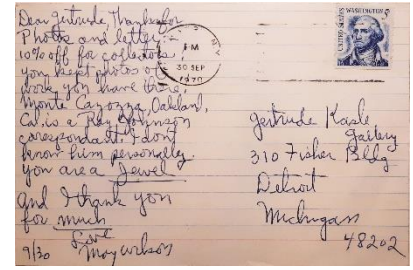 Dear Gertrude, Thanks for
Photos and letter –
10% off for collectors
you kept photos of
work you have fine,
Monte Cazazza, Oakland,
Cal, is a Ray Johnson
corespondant, I dont
know him personally.
you are a Jewel
and I thank you
for much
Love
9/30 May Wilson
PM
30 SEP
1970
UNITED STATES
WASHINGTON
5c
Gertrude Kasle
Gallery
310 Fisher Bldg
Detroit
Michigan
48202